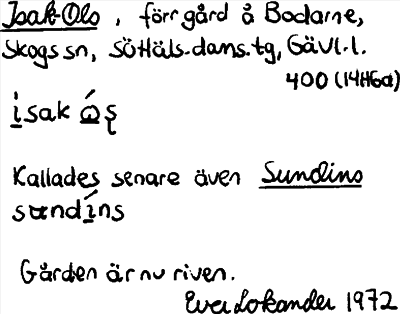 Isak-Ols, förr gård å Bodarne,
Skogs sn, SöHäls.dams.tg, Gävl.l.
400 (14H6a)
ísak ǫ́ş
Kallades senare även Sundins
sundíns
Gården är nu riven.
Eva Lokander 1972